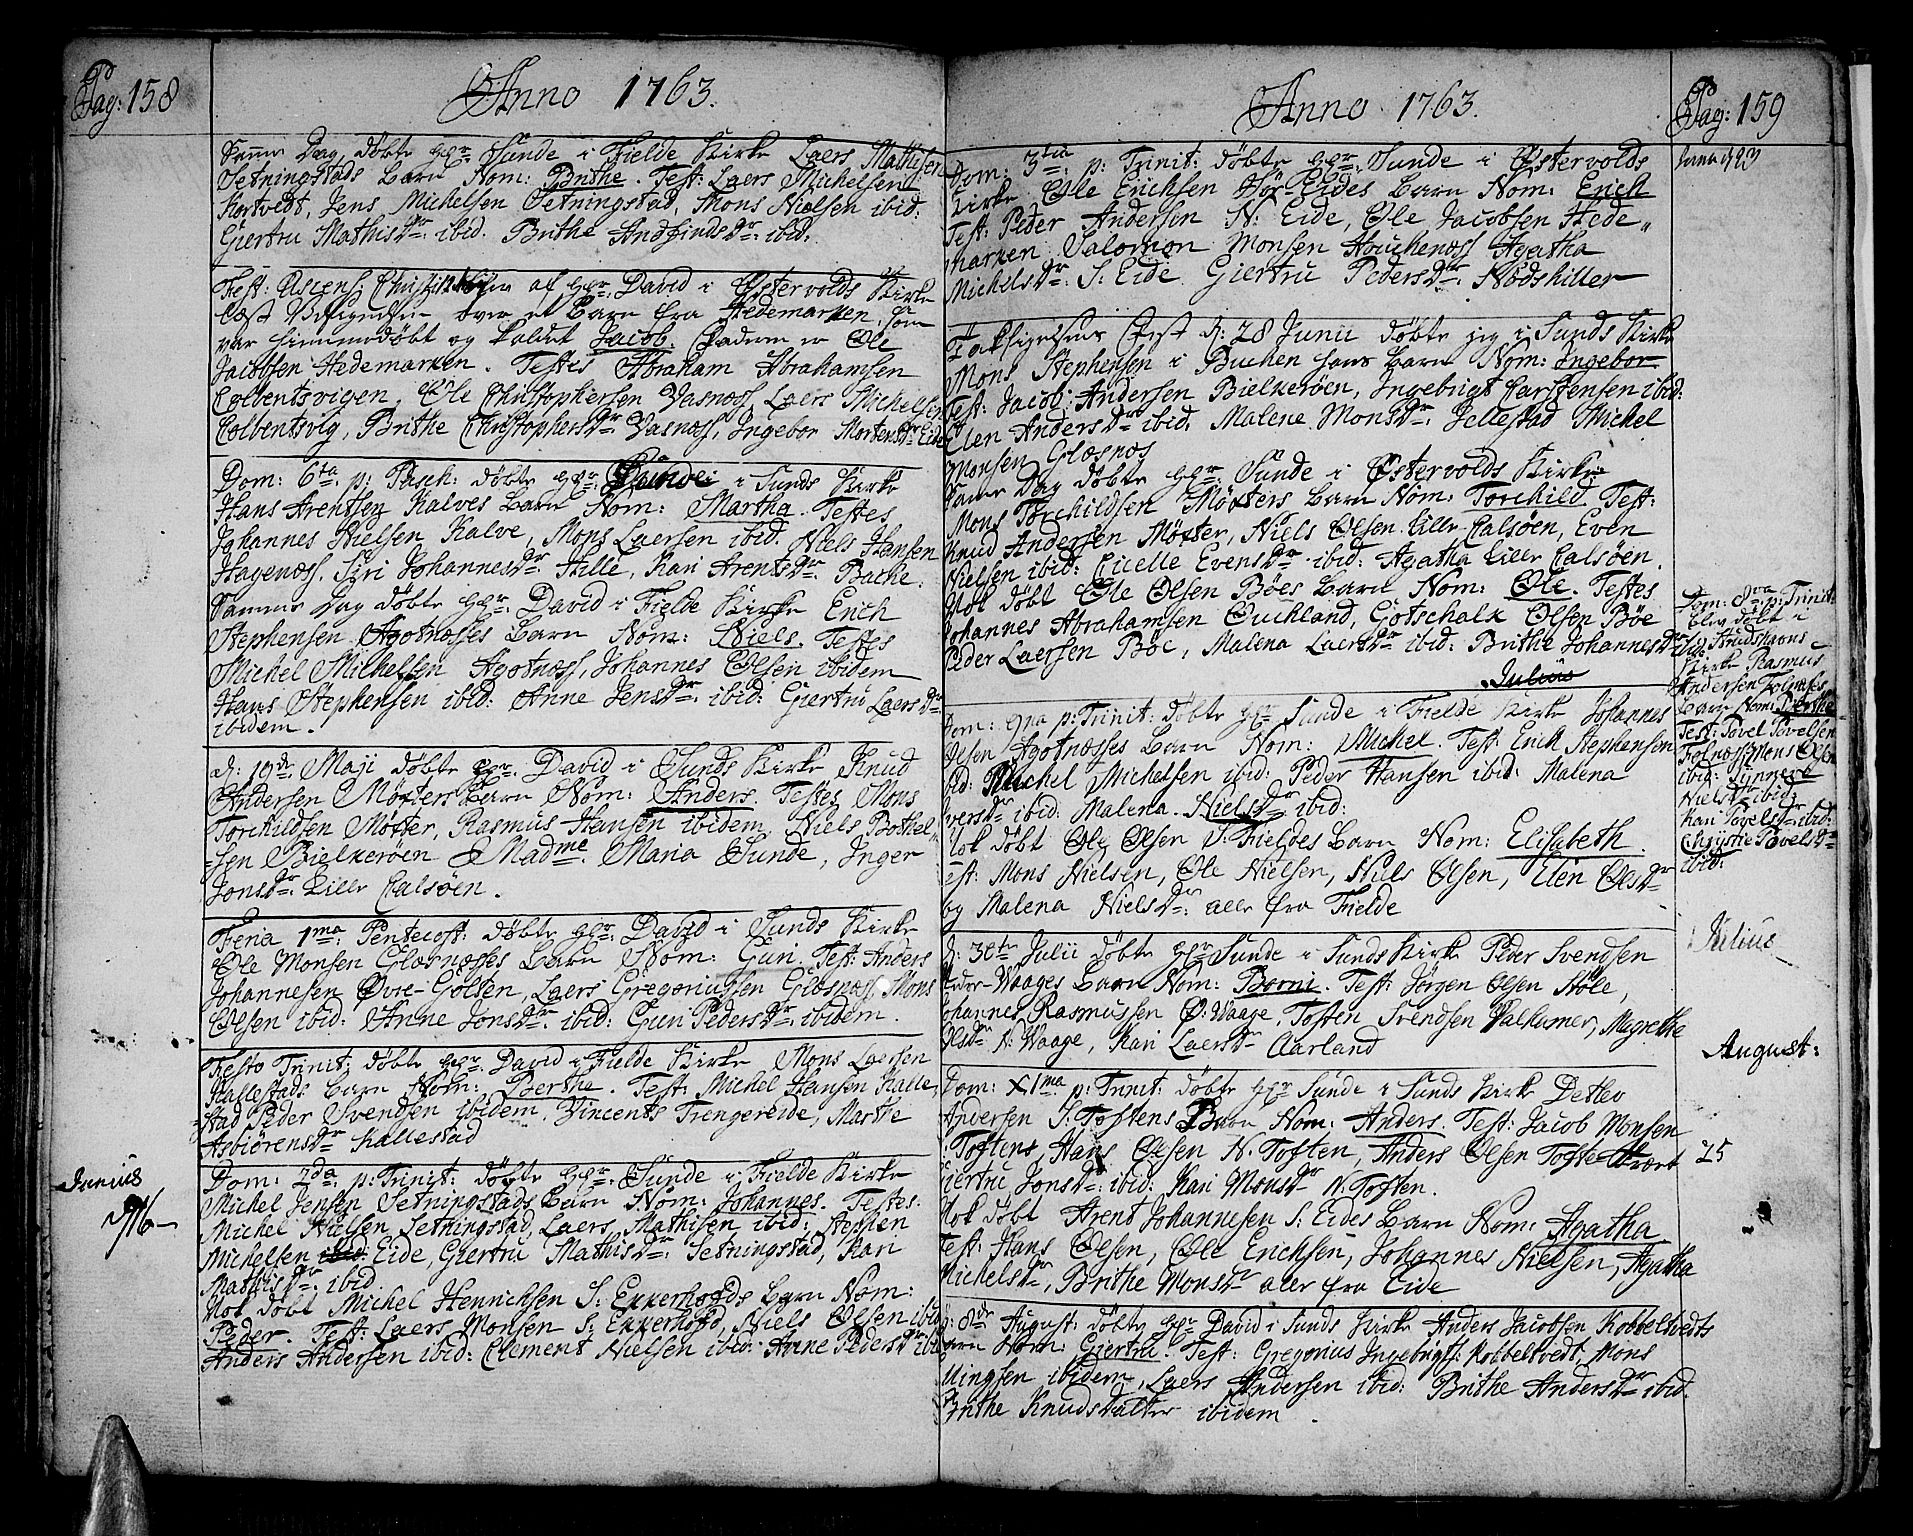 Pag: 158
Anno 1763.
Samme Dag døbte Hr: Sunde i Fielde Kirke Laers Mathisen
Setningstads Barn Nom: Brithe. Test: Laers Michelsen
Kortvedt, Jens Michelsen Setningstad, Mons Nielsen ibid:
Giertru Mathisdr: ibid. Brithe Andfindsdr: ibid:
Fest: Ascens: Christi af Hr: David i Østervolds Kirke
læst Velsignelsen over et Barn fra Hedemarken, som
var hiemmedøbt og kaldet Jacob. Faderen er Ole
Jacobsen Hedemarken. Testes Abraham Abrahamsen
Colbentsvigen, Ole Christophersen Vasnæss, Laers Michelsen
Colbentsvig, Brithe Christophersdr: Vasnæss, Ingebor Mortensdr: Eide
Dom: 6ta p: Pasch: døbte Hr: Sunde: i Sunds Kirke
Hans Arentsen Kalves Barn Nom: Martha. Testes
Johannes Nielsen Kalve, Mons Laersen ibid. Niels Hansen
Hagenæss, Siri Johannesdr: Hille, Kari Arentsdr: Backe.
Samme Dag døbte Hr: David i Fielde Kirke Erich
Stephensen Agotnæsses Barn Nom: Niels. Testes
Michel Michelsen Agotnæss, Johannes Olsen ibidem
Hans Stephensen ibid: Anne Jensdr: ibid: Giertru Laersdr:
ibidem.
d: 19de Maji døbte Hr: David i Sunds Kirke Knud
Andersen Møxters Barn Nom: Anders. Testes Mons
Torchildsen Møxter, Rasmus Hansen ibidem, Niels Bothel-
sen Bielkerøen Madme. Maria Sunde, Inger
Jonsdr: Lille Calsøen.
Feria 1ma: Pentecost: døbte Hr: David i Sunds Kirke
Ole Monsen Glæsnæsses Barn Nom: Guri. Test: Anders
Johannesen Øvre-Golten, Laers Gregoriussen Glæsnæss, Mons
Olsen ibid: Anne Jonsdr: ibid: Guri Pedersdr: ibidem.
Festo Trinit: døbte Hr: David i Fielde Kirke Mons Laersen
Kallestads Barn Nom: Berthe. Test: Michel Hansen Kalle-
stad Peder Svendsen ibidem, Vincents Trengereide, Marthe
Asbiørensdr: Kallestad
Junius
Dom: 2da p: Trinit: døbte Hr: Sunde i Fielde Kirke
Michel Jensen Setningstads Barn Nom: Johannes. Testes:
Michel Nielsen Setningstad, Laers Mathisen ibid: Stephen
Michelsen ibid: Eide, Giertru Mathisdr: Setningstad, Kari
Mathisdr: ibid
Nok døbt Michel Henrichsen S: Ekkerhofds Barn Nom:
Peder. Test: Laers Monsen S: Ekkerhofd, Niels Olsen ibid
Anders Andersen ibid: Clement Nielsen ibid. Anne Pedersdr ibid
Pag: 159
Anno 1763.
Dom: 3tia p: Trinit: døbte Hr: Sunde i Østervolds
Kirke Ole Erichsen Nør Eides Barn Nom: Erich
Test: Peder Andersen N: Eide, Ole Jacobsen Hede-
marken, Salomon Monsen Houchenæss Agatha
Michelsdr: S: Eide Giertru Pedersdr: Nødshiller
Tacksigelsens Fest d: 28 Junii døbte jeg i Sunds Kirke
Mons Stephensen i Buchen hans Barn Nom: Ingebor
Test: Jacob Andersen Bielkerøen, Ingebrigt Carstensen ibid:
Elen Andersdr ibid. Malene Monsdr: Jellestad Michel
Monsen Glæsnæs
Samme Dag døbte Hr: Sunde i Østervolds Kirke
Mons Torchildsen Møxters Barn Nom: Torchild. Test:
Knud Andersen Møxter, Niels Olsen Lille-Calsøen, Even
Nielsen ibid: Cicelle Evensdr ibid: Agatha Lille Calsøen.
Nok døbt Ole Olsen Bøes Barn Nom: Ole. Testes
Johannes Abrahamsen Ouckland, Gotschalk Olsen Bøe
Peder Laersen Bøe, Malena Laersdr ibid: Brithe Johannesdr ibid:
Julius
Dom: 9na p: Trinit: døbte Hr Sunde i Fielde Kirke Johannes
Olsen Agotnæsses Barn Nom: Michel. Test: Erich Stephensen
ibid. Michel Michelsen ibid: Peder Hansen ibid: Malena
Iversdr ibid: Malena Nielsdr ibid:
Nok døbt Ole Olsen S: Fieldes Barn Nom: Elisabeth.
Test: Mons Nielsen, Ole Nielsen, Niels Olsen, Elen Olsdr
og Malena Nielsdr: alle fra Fielde
d: 30te Julii døbte Hr Sunde i Sunds Kirke Peder Svendsen
Waages Barn Nom: Borni. Test: Jørgen Olsen Støle,
Johannes Rasmussen Ø: Waage, Tosten Svendsen Valkamer, Magrethe
Olsdr N: Waage, Kari Laersdr Aarland
Dom: X1ma p: Trinit: døbte Hr Sunde i Sunds Kirke Detlev
Andersen S. Toftens Barn Nom: Anders. Test: Jacob Monsen
Toftens, Hans Olsen N. Toften, Anders Olsen Tofte
Giertru Jonsdr: ibid: Kari Monsdr N. Toften.
Nok døbt Arent Johannesen S: Eides Barn Nom: Agatha
Test: Hans Olsen, Ole Erichsen, Johannes Nielsen, Agatha
Michelsdr, Brithe Monsdr alle fra Eide
d: 8de August: døbte Hr David i Sunds Kirke Anders Jacobsen Kobbeltvedts
Barn Nom: Giertru. Test: Gregorius Ingebrigts: Kobbeltvedt, Mons
ibidem, Laers Andersen ibid: Brithe Andersdr ibid.
Brithe Knudsdatter ibidem.
Dom: 8va p: Trinit:
blev døbt i
Kirke Rasmus
Andersen Folgnæses
Barn Nom: Berthe
Test: Povel Povelsen
Folgnæs Mons Olsen
ibid: Synneve
Nielsdr ibid:
Kari Povelsdr ibid:
Chrystie Povelsdr
ibid:
Julius
August:
25